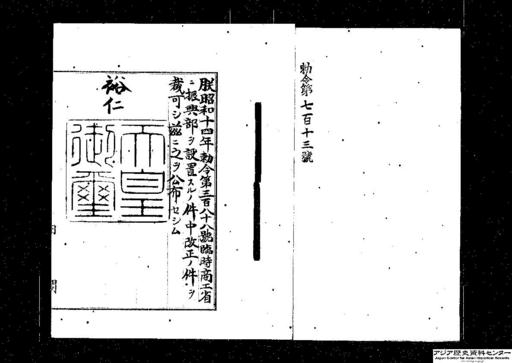 勅令第七百十三號
朕昭和十四年勅令第三百八十八號臨時商工省
ニ振興部ヲ設置スルノ件中改正ノ件ヲ
裁可シ茲ニ之ヲ公布セシム
裕仁
天皇
御璽
アジア歴史資料センター
Japan Center for Asian Historical Records